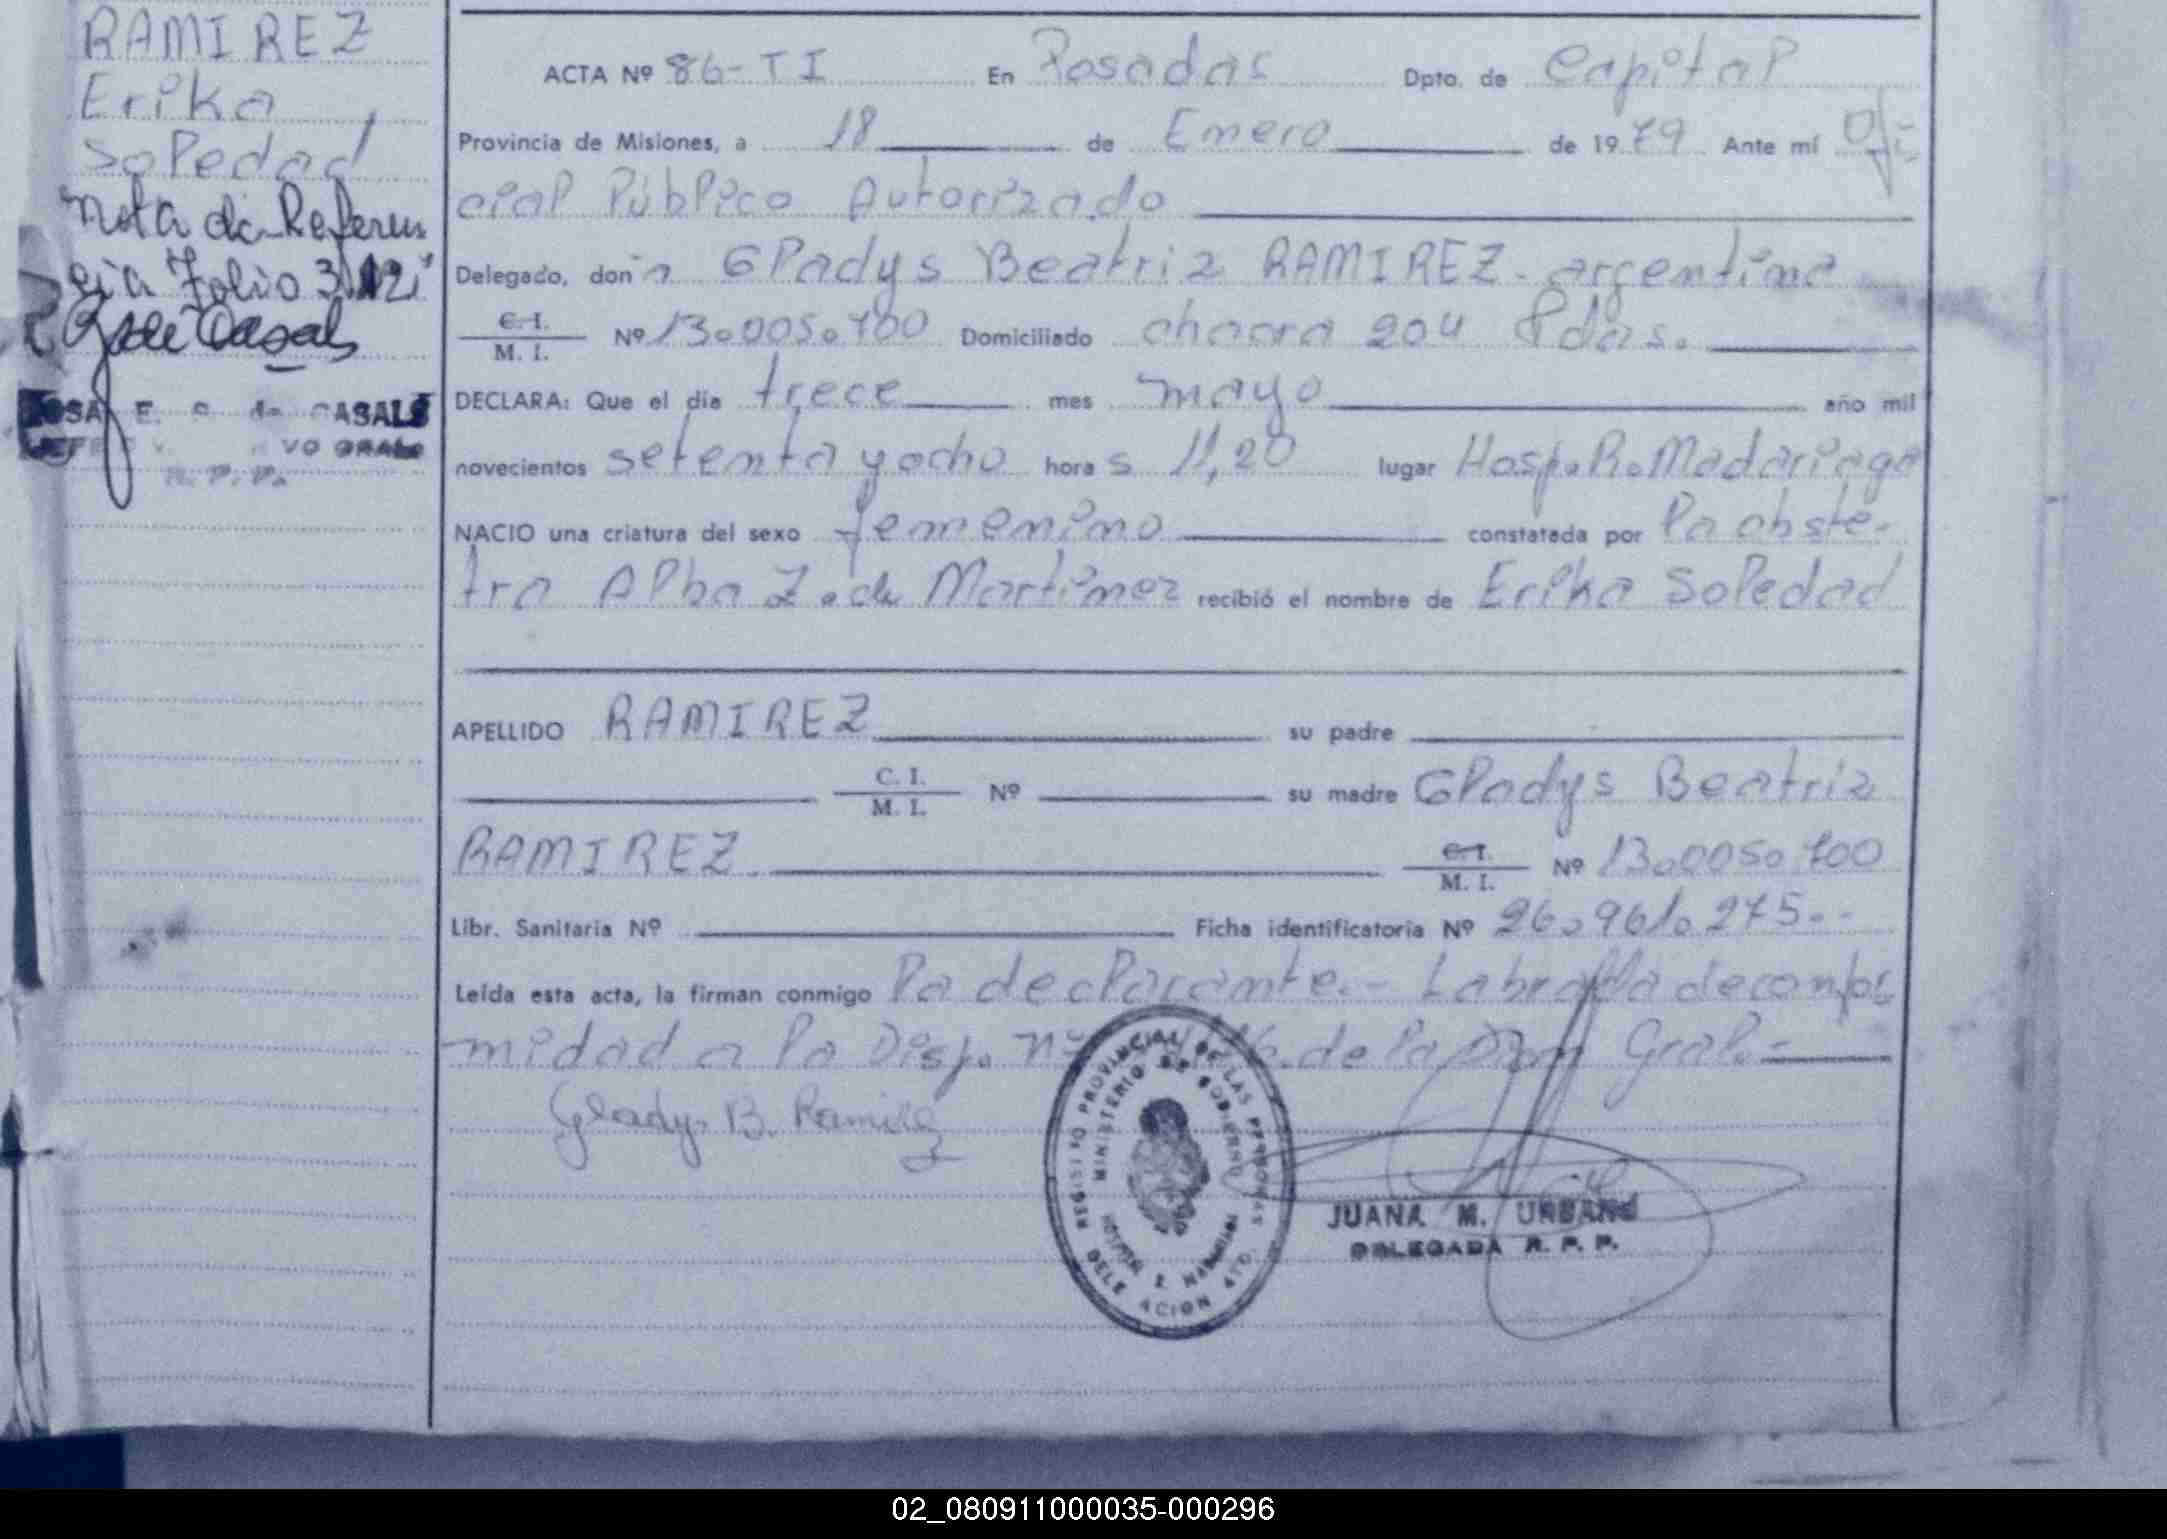 RAMIREZ
Erika
Soledad
Nota de Referen
cia Folio 312
CASALS
R. P. P.
ACTA Nº 86-TI En Posadas Dpto. de Capital
Provincia de Misiones, a 18 de Enero de 1979 Ante mí Ofi
cial Público Autorizado
Delegado, don a Gladys Beatriz RAMIREZ - argentina
C.I. / M. I. Nº 13.005.700 Domiciliado chacra 204 Pdas.
DECLARA: Que el día trece mes mayo año mil
novecientos setenta y ocho hora s 11,20 lugar Hosp. R. Madariaga
NACIO una criatura del sexo femenino constatada por la obste-
tra Alba Z. de Martinez recibió el nombre de Erika Soledad
APELLIDO RAMIREZ su padre
C. I. / M. I. Nº su madre Gladys Beatriz
RAMIREZ C.I. / M. I. Nº 13.005.700
Libr. Sanitaria Nº Ficha identificatoria Nº 26.961.275.-
Leída esta acta, la firman conmigo la declarante.- Labrada de confor
midad a la Disp. Nº de la Dion Gral.-
Gladys B. Ramirez
REGISTRO PROVINCIAL DE LAS PERSONAS
MINISTERIO DE GOBIERNO
DELEGACION 4TO.
JUANA M. URBANO
DELEGADA R. P. P.
02_080911000035-000296